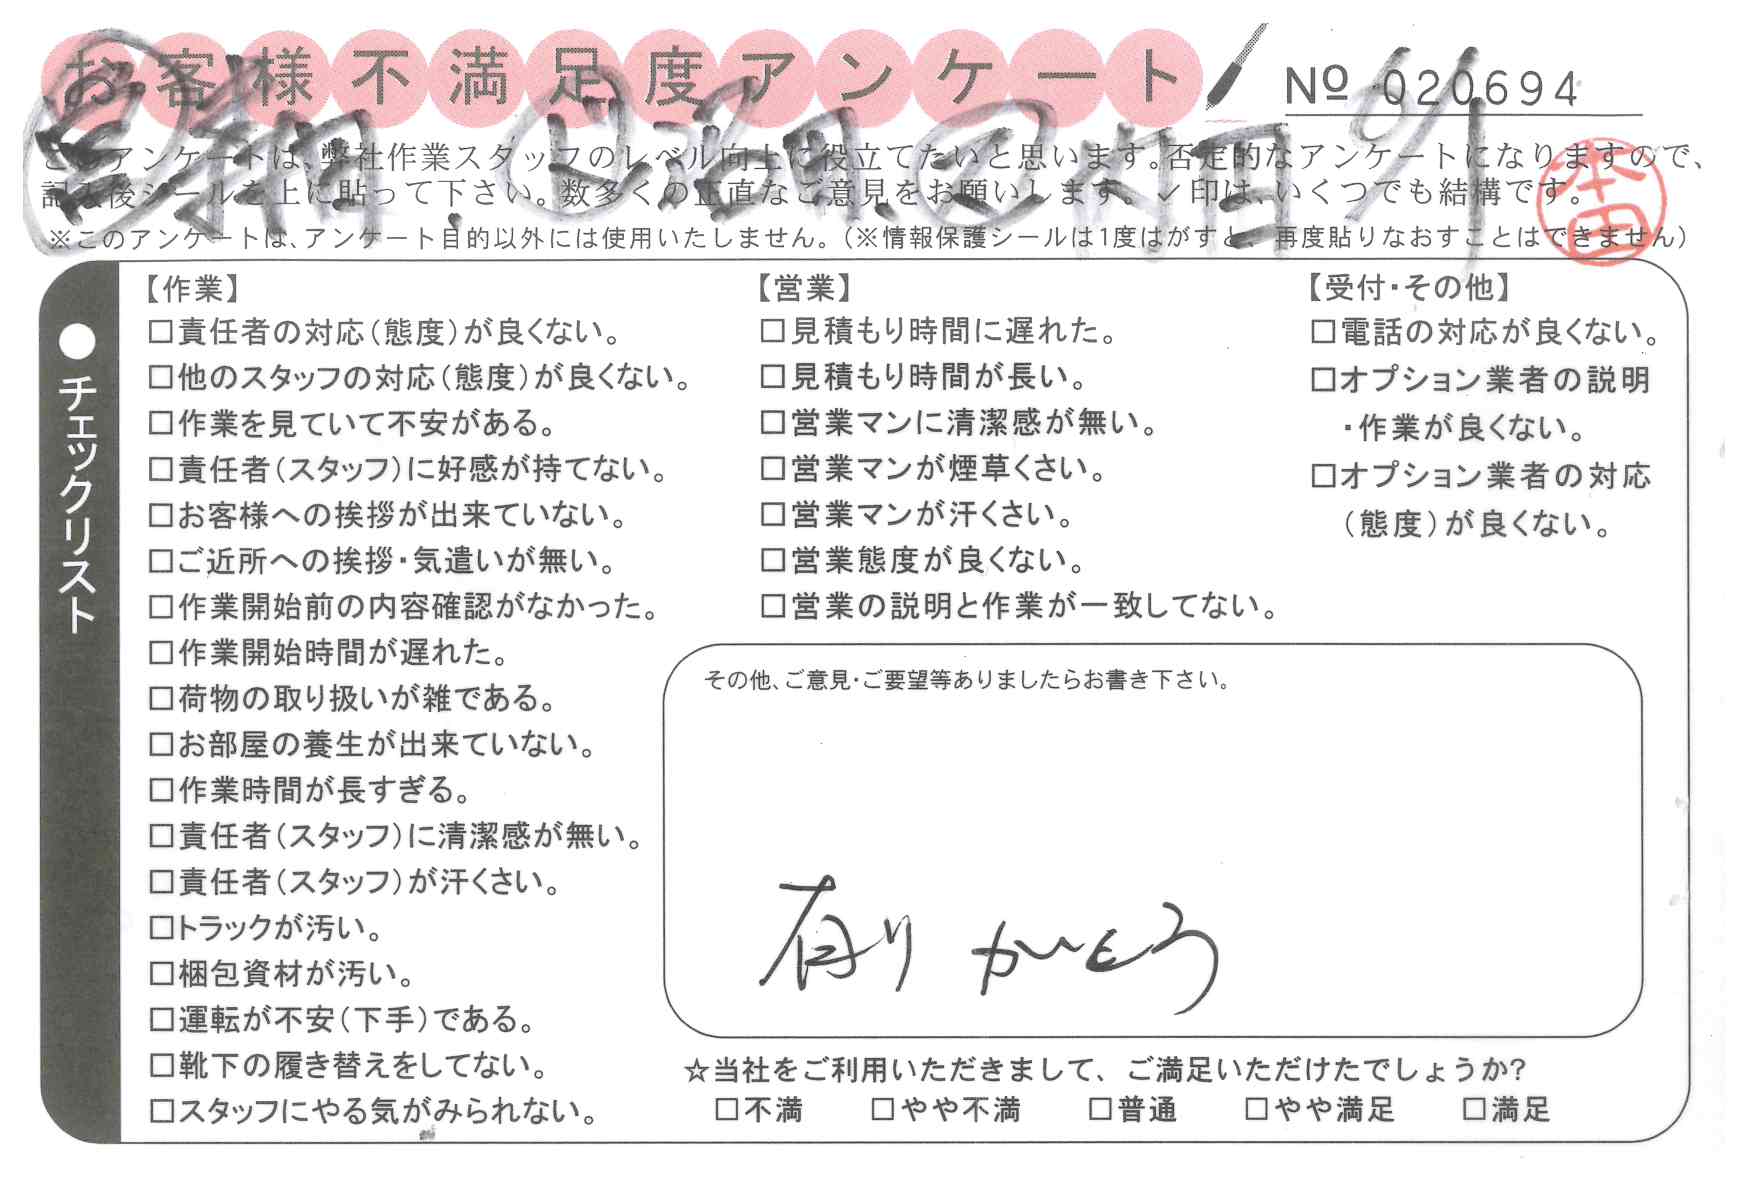 お客様不満足度アンケート
Nº 020694
このアンケートは、弊社作業スタッフのレベル向上に役立てたいと思います。否定的なアンケートになりますので、
記入後シールを上に貼って下さい。数多くの正直なご意見をお願いします。✓印は、いくつでも結構です。
※このアンケートは、アンケート目的以外には使用いたしません。(※情報保護シールは1度はがすと、再度貼りなおすことはできません)
本田
●チェックリスト
【作業】
□責任者の対応(態度)が良くない。
□他のスタッフの対応(態度)が良くない。
□作業を見ていて不安がある。
□責任者(スタッフ)に好感が持てない。
□お客様への挨拶が出来ていない。
□ご近所への挨拶・気遣いが無い。
□作業開始前の内容確認がなかった。
□作業開始時間が遅れた。
□荷物の取り扱いが雑である。
□お部屋の養生が出来ていない。
□作業時間が長すぎる。
□責任者(スタッフ)に清潔感が無い。
□責任者(スタッフ)が汗くさい。
□トラックが汚い。
□梱包資材が汚い。
□運転が不安(下手)である。
□靴下の履き替えをしてない。
□スタッフにやる気がみられない。
【営業】
□見積もり時間に遅れた。
□見積もり時間が長い。
□営業マンに清潔感が無い。
□営業マンが煙草くさい。
□営業マンが汗くさい。
□営業態度が良くない。
□営業の説明と作業が一致してない。
【受付・その他】
□電話の対応が良くない。
□オプション業者の説明
・作業が良くない。
□オプション業者の対応
(態度)が良くない。
その他、ご意見・ご要望等ありましたらお書き下さい。
有りがとう
☆当社をご利用いただきまして、ご満足いただけたでしょうか?
□不満 □やや不満 □普通 □やや満足 □満足